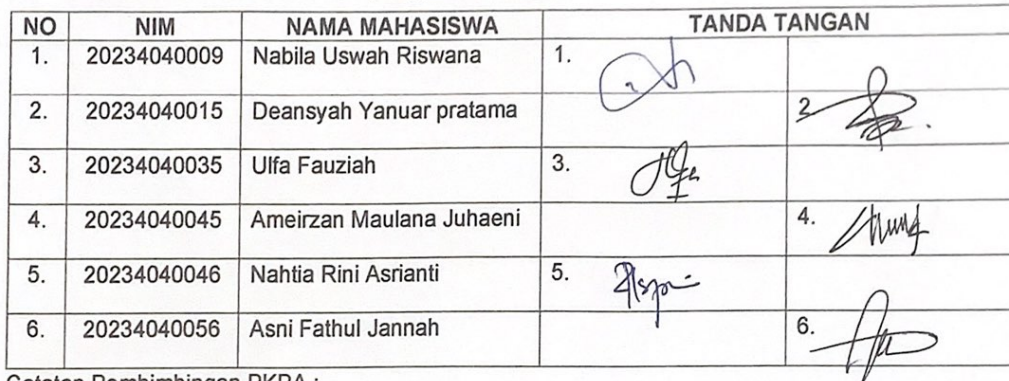 NO NIM NAMA MAHASISWA TANDA TANGAN
1. 20234040009 Nabila Uswah Riswana 1.
2. 20234040015 Deansyah Yanuar pratama 2
3. 20234040035 Ulfa Fauziah 3.
4. 20234040045 Ameirzan Maulana Juhaeni 4.
5. 20234040046 Nahtia Rini Asrianti 5.
6. 20234040056 Asni Fathul Jannah 6.
Catatan Pembimbingan PKPA :